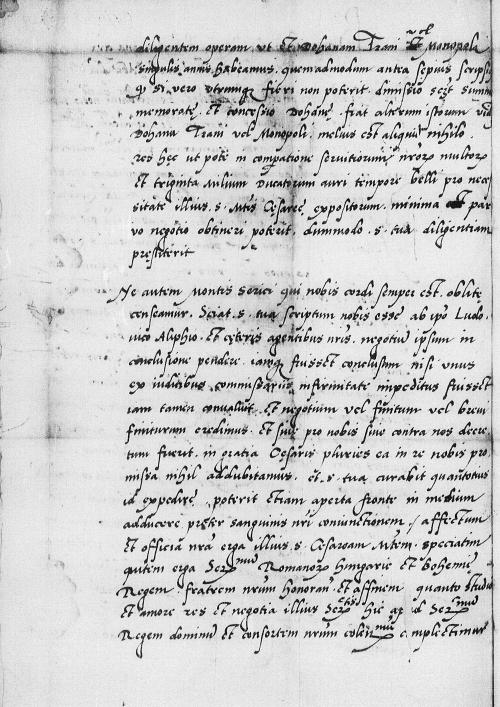 diligentem operam ut et Dohanam Trani vel Monopoli
singulis annis habeamus. quemadmodum antea sepius scripsi
q̃ si vero utrumq̃ fieri non poterit. dimissio scz̃t summe
memorate, et concessio Dohanę fiat alterius istorum vidz̃
Dohanę Trani vel Monopoli, melius est aliquid nihilo.
res hęc ut pote in comparatione servitiorum nr̃orum multorum
et triginta milium Ducatorum auri tempore belli pro neces
sitate illius. s. Mtis Cesareę expositorum. minima et par
vo negotio obtineri poterit, dummodo .s. tua diligentiam
prestiterit
Ne autem Montis Serici qui nobis cordi semper est, oblite
censeamur. Sciat .s. tua scriptum nobis esse ab ip̃o Ludo
vico Aliphio, et cęteris agentibus nr̃is. negotiũ ipsum in
conclusione pendere. iamq̃ fuisset conclusum nisi unus
ex iudicibus commissariis infirmitate impeditus fuisset
iam tamen convaluit, et negotium vel finitum vel brevi
finiturum credimus. et sive pro nobis sive contra nos decre
tum fuerit. in gratia Cęsaris pluries ea in re nobis pro
missa nihil addubitamus. et .s. tua curabit quantotius
id expedire, poterit etiam aperta fronte in medium
adducere pręter sanguinis nr̃i coniunctionem, affectum
et officia nr̃a erga illius .s. Cęsaream Mtem. speciatim
autem erga Serz̃mum Romanorum Hungarie et Bohemie
Regem fratrem nr̃um honoran. et affinem quanto studio
et amore res et negotia illius Serz̃tis hic ap̃d Serz̃mum
Regem dominũ et consortem nr̃um colenz̃mum complectimur